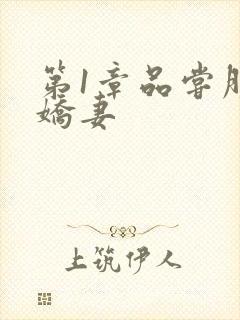 第1章品尝
娇妻
上筑伊人